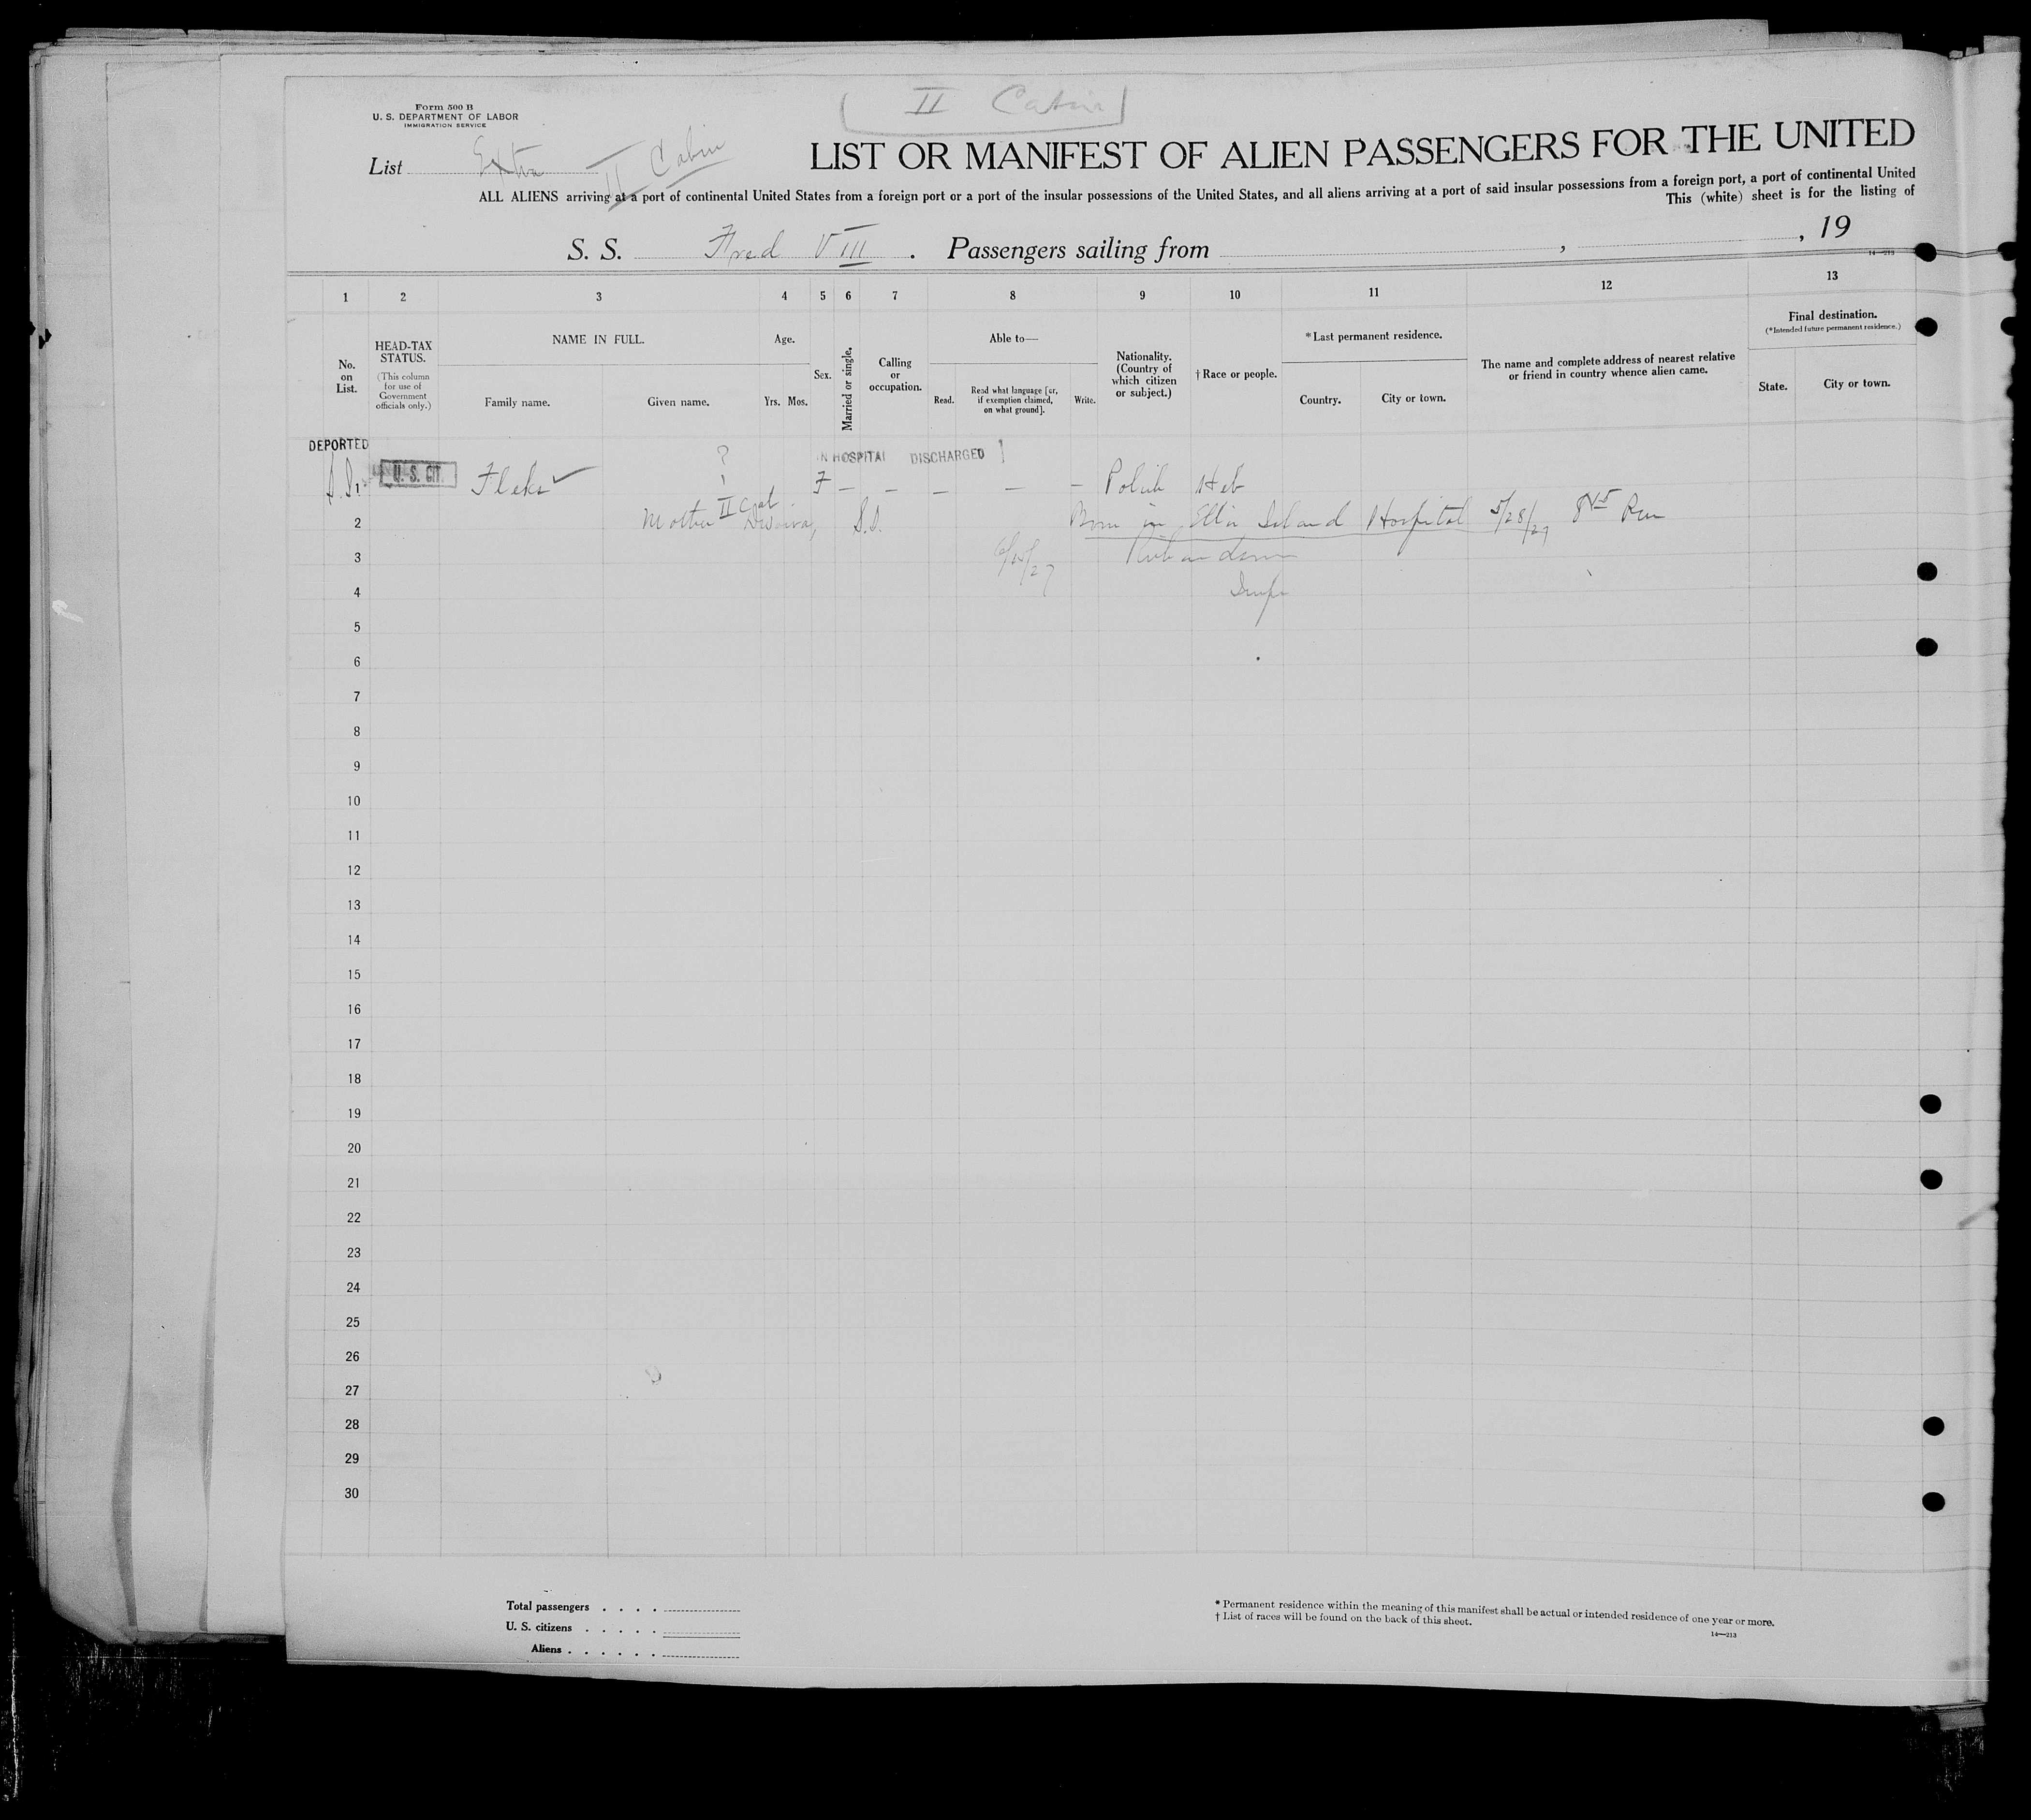 II Cabin
Form 500 B
U. S. DEPARTMENT OF LABOR
IMMIGRATION SERVICE
List Extra II Cabin
LIST OR MANIFEST OF ALIEN PASSENGERS FOR THE UNITED
ALL ALIENS arriving at a port of continental United States from a foreign port or a port of the insular possessions of the United States, and all aliens arriving at a port of said insular possessions from a foreign port, a port of continental United
This (white) sheet is for the listing of
S. S. Fred VIII . Passengers sailing from , , 19
14—213
1 2 3 4 5 6 7 8 9 10 11 12 13
No. on List.
HEAD-TAX STATUS.
(This column for use of Government officials only.)
NAME IN FULL.
Family name. Given name.
Age.
Yrs. Mos.
Sex.
Married or single.
Calling or occupation.
Able to—
Read. Read what language [or, if exemption claimed, on what ground]. Write.
Nationality. (Country of which citizen or subject.)
† Race or people.
* Last permanent residence.
Country. City or town.
The name and complete address of nearest relative or friend in country whence alien came.
Final destination.
(*Intended future permanent residence.)
State. City or town.
DEPORTED ? IN HOSPITAL DISCHARGED
S.I. 1 U. S. CIT. F – – – – – Polish Heb
2 Mother II Cab S.I. Born in Ellis Island Hospital 5/28/27
3 6/15/27
4
5
6
7
8
9
10
11
12
13
14
15
16
17
18
19
20
21
22
23
24
25
26
27
28
29
30
Total passengers . . . .
U. S. citizens . . . . .
Aliens . . . . . .
* Permanent residence within the meaning of this manifest shall be actual or intended residence of one year or more.
† List of races will be found on the back of this sheet.
14—213